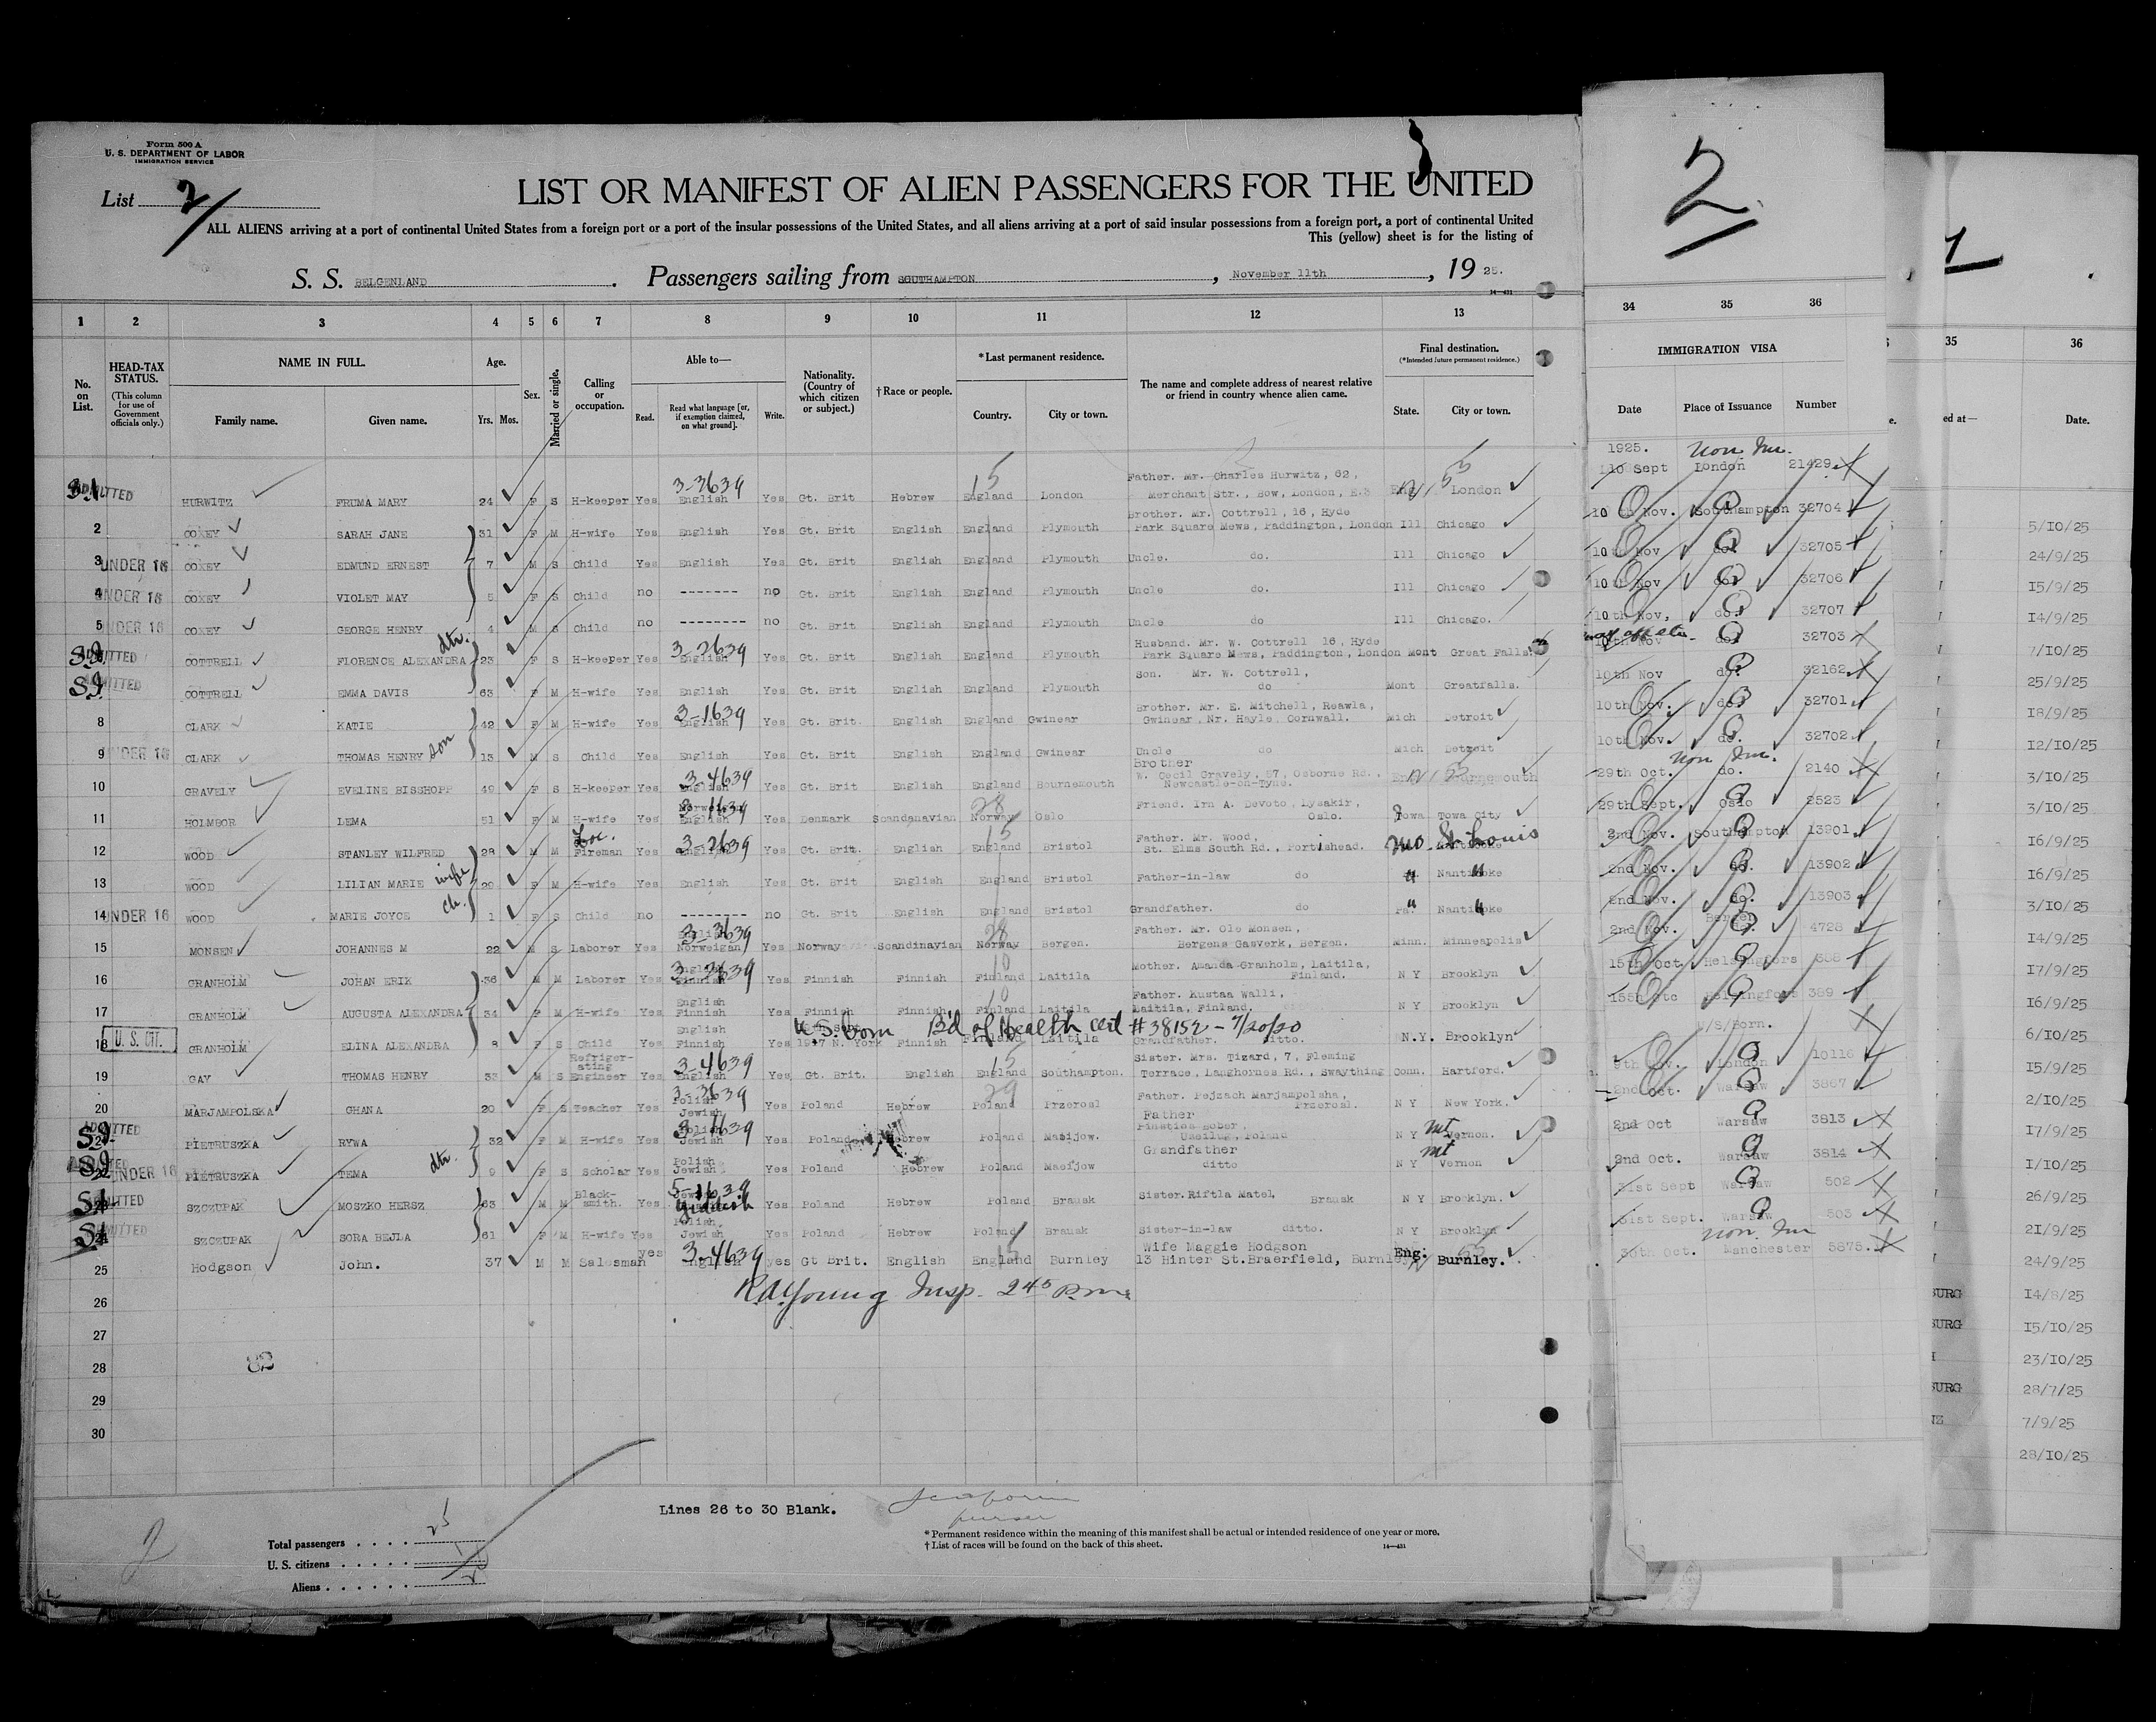 Form 500 A
U. S. DEPARTMENT OF LABOR
IMMIGRATION SERVICE
List 2
LIST OR MANIFEST OF ALIEN PASSENGERS FOR THE UNITED
ALL ALIENS arriving at a port of continental United States from a foreign port or a port of the insular possessions of the United States, and all aliens arriving at a port of said insular possessions from a foreign port, a port of continental United
This (yellow) sheet is for the listing of
S. S. BELGENLAND . Passengers sailing from SOUTHAMPTON , November 11th , 19 25.
1 2 3 4 5 6 7 8 9 10 11 12 13
No. on List. HEAD-TAX STATUS. (This column for use of Government officials only.) NAME IN FULL. Family name. Given name. Age. Yrs. Mos. Sex. Married or single. Calling or occupation. Able to— Read. Read what language [or, if exemption claimed, on what ground]. Write. Nationality. (Country of which citizen or subject.) †Race or people. *Last permanent residence. Country. City or town. The name and complete address of nearest relative or friend in country whence alien came. Final destination. (*Intended future permanent residence.) State. City or town.
2
34 35 36
IMMIGRATION VISA
Date Place of Issuance Number
35 36
ed at— Date.
1 ADMITTED HURWITZ FRUMA MARY 24 F S H-keeper Yes 3-3639 English Yes Gt. Brit Hebrew 15 England London Father. Mr. Charles Hurwitz, 62, Merchant Str., Bow, London, E.3 London 1925. 10 Sept London 21429
2 COXEY SARAH JANE 31 F M H-wife Yes English Yes Gt. Brit English England Plymouth Brother. Mr. Cottrell, 16, Hyde Park Square Mews, Paddington, London Ill Chicago 10th Nov. Southampton 32704
3 UNDER 16 COXEY EDMUND ERNEST 7 M S Child Yes English Yes Gt. Brit English England Plymouth Uncle. do. Ill Chicago 10th Nov do. 32705
4 UNDER 16 COXEY VIOLET MAY 5 F S Child no -------- no Gt. Brit English England Plymouth Uncle do. Ill Chicago 10th Nov do. 32706
5 UNDER 16 COXEY GEORGE HENRY 4 M S Child no -------- no Gt. Brit English England Plymouth Uncle do Ill Chicago. 10th Nov, do. 32707
ADMITTED COTTRELL FLORENCE ALEXANDRA dtr. 23 F S H-keeper Yes 3-2639 English Yes Gt. Brit English England Plymouth Husband. Mr. W. Cottrell 16, Hyde Park Square Mews, Paddington, London Mont Great Falls. 10th Nov do. 32703
ADMITTED COTTRELL EMMA DAVIS 63 F M H-wife Yes English Yes Gt. Brit English England Plymouth Son. Mr. W. Cottrell, do Mont Greatfalls. 10th Nov do. 32162
8 CLARK KATIE 42 F M H-wife Yes 3-1639 English Yes Gt. Brit. English England Gwinear Brother. Mr. E. Mitchell, Reawla, Gwinear, Nr. Hayle, Cornwall. Mich Detroit 10th Nov. do. 32701
9 UNDER 16 CLARK THOMAS HENRY son 13 M S Child Yes English Yes Gt. Brit English England Gwinear Uncle do Mich Detroit 10th Nov. do. 32702
10 GRAVELY EVELINE BISSHOPP 49 F S H-keeper Yes 3-4639 English Yes Gt. Brit English England Bournemouth Brother W. Cecil Gravely, 57, Osborne Rd., Newcastle-on-Tyne. Bournemouth 29th Oct. do. 2140
11 HOLMBOR LEMA 51 F M H-wife Yes 3-1639 Norweigan English Yes Denmark Scandanavian 28 Norway Oslo Friend. Irn A. Devoto, Lysakir, Oslo. Iowa Iowa City 29th Sept. Oslo 2523
12 WOOD STANLEY WILFRED 28 M M Loc. Fireman Yes 3-2639 English Yes Gt. Brit. English 15 England Bristol Father. Mr. Wood, St. Elms South Rd., Portishead. Mo St. Louis 2nd Nov. Southampton 13901
13 WOOD LILIAN MARIE wife 20 F M H-wife Yes English Yes Gt. Brit English England Bristol Father-in-law do " Nantikoke 2nd Nov. do. 13902
14 UNDER 16 WOOD MARIE JOYCE ch. 1 F S Child no -------- no Gt. Brit English England Bristol Grandfather. do Pa. " Nantikoke 2nd Nov. do. 13903
15 MONSEN JOHANNES M 22 M S Laborer Yes 3-3639 Norweigan Yes Norway Scandinavian 28 Norway Bergen. Father. Mr. Ole Monsen, Bergens Gasverk, Bergen. Minn. Minneapolis 2nd Nov. Bergen 4728
16 GRANHOLM JOHAN ERIK 36 M M Laborer Yes 3-2639 English Finnish Yes Finnish Finnish 10 Finland Laitila Mother. Amanda Granholm, Laitila, Finland. N Y Brooklyn 15th Oct. Helsingfors 388
17 GRANHOLM AUGUSTA ALEXANDRA 34 F M H-wife Yes English Finnish Yes Finnish Finnish 10 Finland Laitila Father. Kustaa Walli, Laitila, Finland. N Y Brooklyn Helsingfors 389
18 U. S. CIT. GRANHOLM ELINA ALEXANDRA 8 F S Child Yes English Finnish Yes U. S. born 1917 N. York Finnish Finland Laitila B'd of Health cert #38152 - 7/20/20 Grandfather. ditto. N.Y. Brooklyn U/S/Born.
19 GAY THOMAS HENRY 33 M S Refriger-ating Engineer Yes 3-4639 English Yes Gt. Brit. English 15 England Southampton. Sister. Mrs. Tizard, 7, Fleming Terrace, Langhornes Rd., Swaything Conn. Hartford. 9th Nov. London 10116
20 MARJAMPOLSKA GHANA 20 F S Teacher Yes 3-3639 Polish Jewish Yes Poland Hebrew 29 Poland Przerosl Father. Pejzach Marjampolsha, Przerosl. N Y New York. 2nd Oct. Warsaw 3867
ADMITTED PIETRUSZKA RYWA 32 F M H-wife Yes Polish Jewish Yes Poland Hebrew Poland Masijow. Father Uscilug, Poland N Y Mt Vernon. 2nd Oct Warsaw 3813
UNDER 16 PIETRUSZKA TEMA dtr. 9 F S Scholar Yes Polish Jewish Yes Poland Hebrew Poland Grandfather ditto N Y Mt Vernon 2nd Oct. Warsaw 3814
ADMITTED SZCZUPAK MOSZKO HERSZ 63 M M Black-smith. Yes 5-1639 Yiddish Yes Poland Hebrew Poland Bransk Sister. Riftla Matel, Bransk N Y Brooklyn. 31st Sept Warsaw 502
ADMITTED SZCZUPAK SORA BEJLA 61 F M H-wife Yes Polish, Jewish Yes Poland Hebrew Poland Bransk Sister-in-law ditto. N Y Brooklyn 31st Sept. Warsaw 503
25 Hodgson John. 37 M M Salesman yes 3-4639 English yes Gt Brit. English 15 England Burnley Wife Maggie Hodgson 13 Hinter St.Braerfield, Burnley Eng: Burnley. 30th Oct. Manchester 5875.
R.A. Young Insp. 2 45 P.m.
26
27
28 82
29
30
5/10/25
24/9/25
15/9/25
14/9/25
7/10/25
25/9/25
18/9/25
12/10/25
3/10/25
3/10/25
16/9/25
16/9/25
3/10/25
14/9/25
17/9/25
16/9/25
6/10/25
15/9/25
2/10/25
17/9/25
1/10/25
26/9/25
21/9/25
24/9/25
BURG 14/8/25
BURG 15/10/25
23/10/25
BURG 28/7/25
7/9/25
28/10/25
Lines 26 to 30 Blank.
purser
* Permanent residence within the meaning of this manifest shall be actual or intended residence of one year or more.
† List of races will be found on the back of this sheet.
14—431
Total passengers . . . . 25
U. S. citizens . . . . . 1
Aliens . . . . . .
2